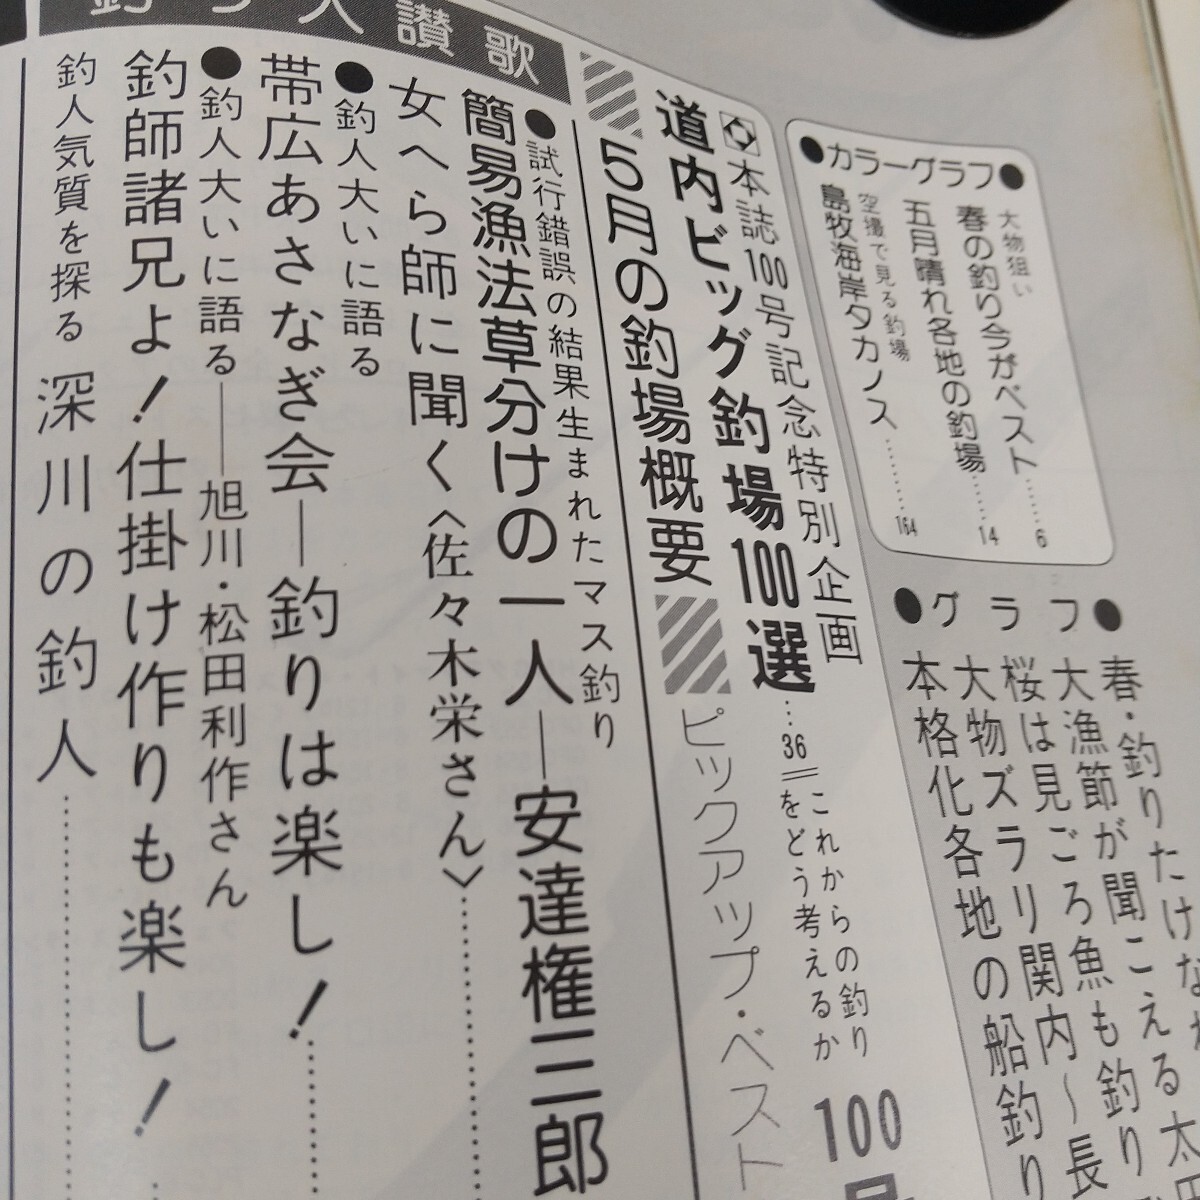 ●カラーグラフ●
大物狙い
春の釣り今がベスト……6
五月晴れ各地の釣場……14
空撮で見る釣場
島牧海岸タカノス………164
●グラフ●
春・釣りたけなわ
大漁節が聞こえる太
桜は見ごろ魚も釣り
大物ズラリ関内〜長
本格化各地の船釣り
本誌100号記念特別企画
道内ビッグ釣場100選…36
これからの釣り
をどう考えるか
100号
5月の釣場概要
ピックアップ・ベスト
釣り人讃歌
●試行錯誤の結果生まれたマス釣り
簡易漁法草分けの一人―安達権三郎
女へら師に聞く〈佐々木栄さん〉
●釣人大いに語る
帯広あさなぎ会―釣りは楽し！
●釣人大いに語る――旭川・松田利作さん
釣師諸兄よ！仕掛け作りも楽し！
釣人気質を探る 深川の釣人